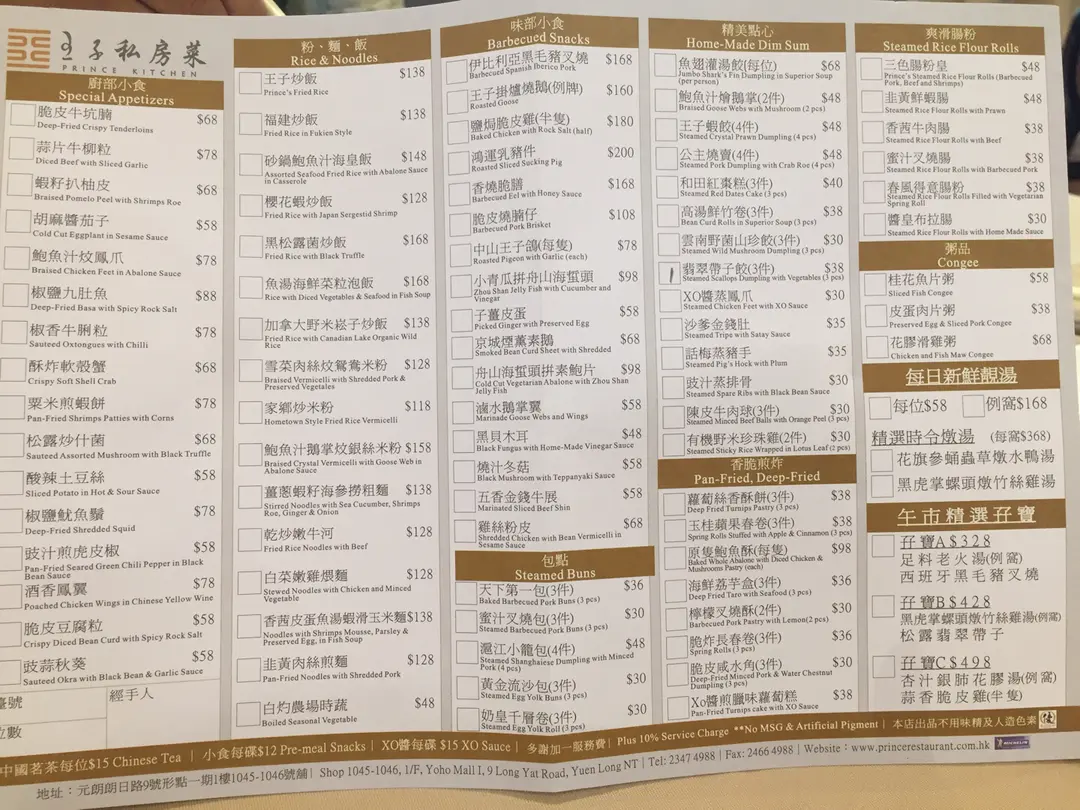 王子私房菜
PRINCE KITCHEN
廚部小食
Special Appetizers
脆皮牛坑腩 $68
Deep-Fried Crispy Tenderloins
蒜片牛柳粒 $78
Diced Beef with Sliced Garlic
蝦籽扒柚皮 $68
Braised Pomelo Peel with Shrimps Roe
胡麻醬茄子 $58
Cold Cut Eggplant in Sesame Sauce
鮑魚汁炆鳳爪 $78
Braised Chicken Feet in Abalone Sauce
椒鹽九肚魚 $88
Deep-Fried Basa with Spicy Rock Salt
椒香牛脷粒 $78
Sauteed Oxtongues with Chilli
酥炸軟殼蟹 $68
Crispy Soft Shell Crab
粟米煎蝦餅 $78
Pan-Fried Shrimps Patties with Corns
松露炒什菌 $68
Sauteed Assorted Mushroom with Black Truffle
酸辣土豆絲 $58
Sliced Potato in Hot & Sour Sauce
椒鹽魷魚鬚 $78
Deep-Fried Shredded Squid
豉汁煎虎皮椒 $58
Pan-Fried Seared Green Chili Pepper in Black
Bean Sauce
酒香鳳翼 $78
Poached Chicken Wings in Chinese Yellow Wine
脆皮豆腐粒 $58
Crispy Diced Bean Curd with Spicy Rock Salt
豉蒜秋葵 $58
Sauteed Okra with Black Bean & Garlic Sauce
號 經手人
位數
粉、麵、飯
Rice & Noodles
王子炒飯 $138
Prince's Fried Rice
福建炒飯 $138
Fried Rice in Fukien Style
砂鍋鮑魚汁海皇飯 $148
Assorted Seafood Fried Rice with Abalone Sauce
in Casserole
櫻花蝦炒飯 $128
Fried Rice with Japan Sergestid Shrimp
黑松露菌炒飯 $168
Fried Rice with Black Truffle
魚湯海鮮菜粒泡飯 $168
Rice with Diced Vegetables & Seafood in Fish Soup
加拿大野米崧子炒飯 $138
Fried Rice with Canadian Lake Organic Wild
Rice
雪菜肉絲炆鴛鴦米粉 $128
Braised Vermicelli with Shredded Pork &
Preserved Vegetales
家鄉炒米粉 $118
Hometown Style Fried Rice Vermicelli
鮑魚汁鵝掌炆銀絲米粉 $158
Braised Crystal Vermicelli with Goose Web in
Abalone Sauce
薑蔥蝦籽海參撈粗麵 $138
Stirred Noodles with Sea Cucumber, Shrimps
Roe, Ginger & Onion
乾炒嫩牛河 $128
Fried Rice Noodles with Beef
白菜嫩雞煨麵 $128
Stewed Noodles with Chicken and Minced
Vegetable
香茜皮蛋魚湯蝦滑玉米麵 $138
Noodles with Shrimps Mousse, Parsley &
Preserved Egg, in Fish Soup
韭黃肉絲煎麵 $128
Pan-Fried Noodles with Shredded Pork
白灼農場時蔬 $48
Boiled Seasonal Vegetable
味部小食
Barbecued Snacks
伊比利亞黑毛豬叉燒 $168
Barbecued Spanish Iberico Pork
王子掛爐燒鵝(例牌) $160
Roasted Goose
鹽焗脆皮雞(半隻) $180
Baked Chicken with Rock Salt (half)
鴻運乳豬件 $200
Roasted Sliced Sucking Pig
香燒脆膳 $168
Barbecued Eel with Honey Sauce
脆皮燒腩仔 $108
Barbecued Pork Brisket
中山王子鴿(每隻) $78
Roasted Pigeon with Garlic (each)
小青瓜拼舟山海蜇頭 $98
Zhou Shan Jelly Fish with Cucumber and
Vinegar
子薑皮蛋 $58
Picked Ginger with Preserved Egg
京城煙薰素鵝 $68
Smoked Bean Curd Sheet with Shredded
舟山海蜇頭拼素鮑片 $98
Cold Cut Vegetarian Abalone with Zhou Shan
Jelly Fish
滷水鵝掌翼 $58
Marinade Goose Webs and Wings
黑貝木耳 $48
Black Fungus with Home-Made Vinegar Sauce
燒汁冬菇 $58
Black Mushroom with Teppanyaki Sauce
五香金錢牛展 $58
Marinated Sliced Beef Shin
雞絲粉皮 $68
Shredded Chicken with Bean Vermicelli in
Sesame Sauce
包點
Steamed Buns
天下第一包(3件) $36
Baked Barbecued Pork Buns (3 pcs)
蜜汁叉燒包(3件) $30
Steamed Barbecued Pork Buns (3 pcs)
滬江小籠包(4件) $48
Steamed Shanghaiese Dumpling with Minced
Pork (4 pcs)
黃金流沙包(3件) $30
Steamed Egg Yolk Buns (3 pcs)
奶皇千層卷(3件) $30
Steamed Egg Yolk Roll (3 pcs)
精美點心
Home-Made Dim Sum
魚翅灌湯餃(每位) $68
Jumbo Shark's Fin Dumpling in Superior Soup
(per person)
鮑魚汁燴鵝掌(2件) $48
Braised Goose Webs with Mushroom (2 pcs)
王子蝦餃(4件) $48
Steamed Crystal Prawn Dumpling (4 pcs)
公主燒賣(4件) $48
Steamed Pork Dumpling with Crab Roe (4 pcs)
和田紅棗糕(3件) $40
Steamed Red Dates Cake (3 pcs)
高湯鮮竹卷(3件) $38
Bean Curd Rolls in Superior Soup (3 pcs)
雲南野菌山珍餃(3件) $30
Steamed Wild Mushroom Dumpling (3 pcs)
翡翠帶子餃(3件) $38
Steamed Scallops Dumpling with Vegetables (3 pcs)
XO醬蒸鳳爪 $30
Steamed Chicken Feet with XO Sauce
沙爹金錢肚 $35
Steamed Tripe with Satay Sauce
話梅蒸豬手 $35
Steamed Pig's Hock with Plum
豉汁蒸排骨 $30
Steamed Spare Ribs with Black Bean Sauce
陳皮牛肉球(3件) $30
Steamed Minced Beef Balls with Orange Peel (3 pcs)
有機野米珍珠雞(2件) $30
Steamed Sticky Rice Wrapped in Lotus Leaf (2 pcs)
香脆煎炸
Pan-Fried, Deep-Fried
蘿蔔絲香酥餅(3件) $38
Deep Fried Turnips Pastry (3 pcs)
玉桂蘋果春卷(3件) $38
Spring Rolls Stuffed with Apple & Cinnamon (3 pcs)
原隻鮑魚酥(每隻) $98
Baked Whole Abalone with Diced Chicken &
Mushrooms Pastry (each)
海鮮荔芋盒(3件) $36
Deep Fried Taro with Seafood (3 pcs)
檸檬叉燒酥(2件) $30
Barbecued Pork Pastry with Lemon(2 pcs)
脆炸長春卷(3件) $36
Spring Rolls (3 pcs)
脆皮咸水角(3件) $30
Deep-Fried Minced Pork & Water Chestnut
Dumpling (3 pcs)
Xo醬煎臘味蘿蔔糕 $38
Pan-Fried Turnips cake with XO Sauce
爽滑腸粉
Steamed Rice Flour Rolls
三色腸粉皇 $48
Prince's Steamed Rice Flour Rolls (Barbecued
Pork, Beef and Shrimps)
韭黃鮮蝦腸 $48
Steamed Rice Flour Rolls with Prawn
香茜牛肉腸 $38
Steamed Rice Flour Rolls with Beef
蜜汁叉燒腸 $38
Steamed Rice Flour Rolls with Barbecued Pork
春風得意腸粉 $38
Steamed Rice Flour Rolls Filled with Vegetarian
Spring Roll
醬皇布拉腸 $30
Steamed Rice Flour Rolls with Home Made Sauce
粥品
Congee
桂花魚片粥 $58
Sliced Fish Congee
皮蛋肉片粥 $38
Preserved Egg & Sliced Pork Congee
花膠滑雞粥 $68
Chicken and Fish Maw Congee
每日新鮮靚湯
每位$58 例窩$168
精選時令燉湯 (每窩$368)
花旗參蛹蟲草燉水鴨湯
黑虎掌螺頭燉竹絲雞湯
午市精選孖寶
孖寶A$328
足料老火湯(例窩)
西班牙黑毛豬叉燒
孖寶B$428
黑虎掌螺頭燉竹絲雞湯(例窩)
松露翡翠帶子
孖寶C$498
杏汁銀肺花膠湯(例窩)
蒜香脆皮雞(半隻)
中國茗茶每位$15 Chinese Tea | 小食每碟$12 Pre-meal Snacks | XO醬每碟 $15 XO Sauce | 多謝加一服務費| Plus 10% Service Charge **No MSG & Artificial Pigment | 本店出品不用味精及人造色素
地址:元朗朗日路9號形點一期1樓1045-1046號舖| Shop 1045-1046, 1/F, Yoho Mall I, 9 Long Yat Road, Yuen Long NT | Tel: 2347 4988 | Fax: 2466 4988 | Website: www.princerestaurant.com.hk